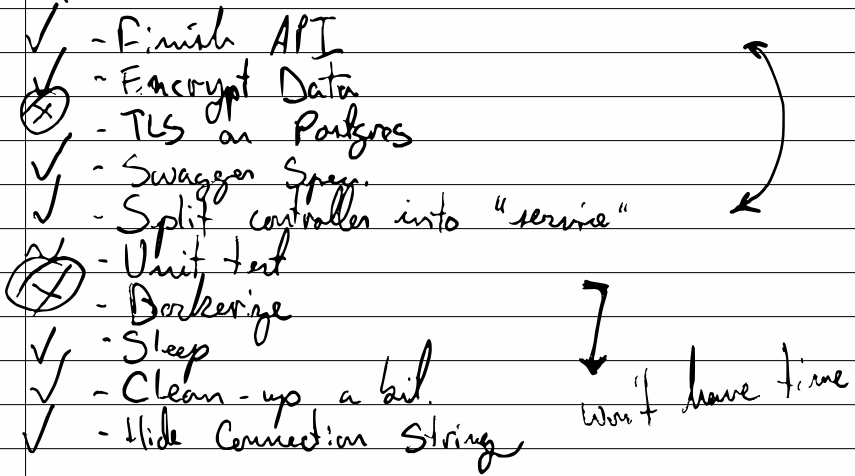 ✓ - Finish API
✓ - Encrypt Data
ⓧ - TLS on Postgres
✓ - Swagger Spec.
✓ - Split controller into "service"
~ - Unit test
ⓧ - Dockerize
✓ - Sleep
✓ - Clean-up a bit.
won't have time
✓ - Hide Connection String